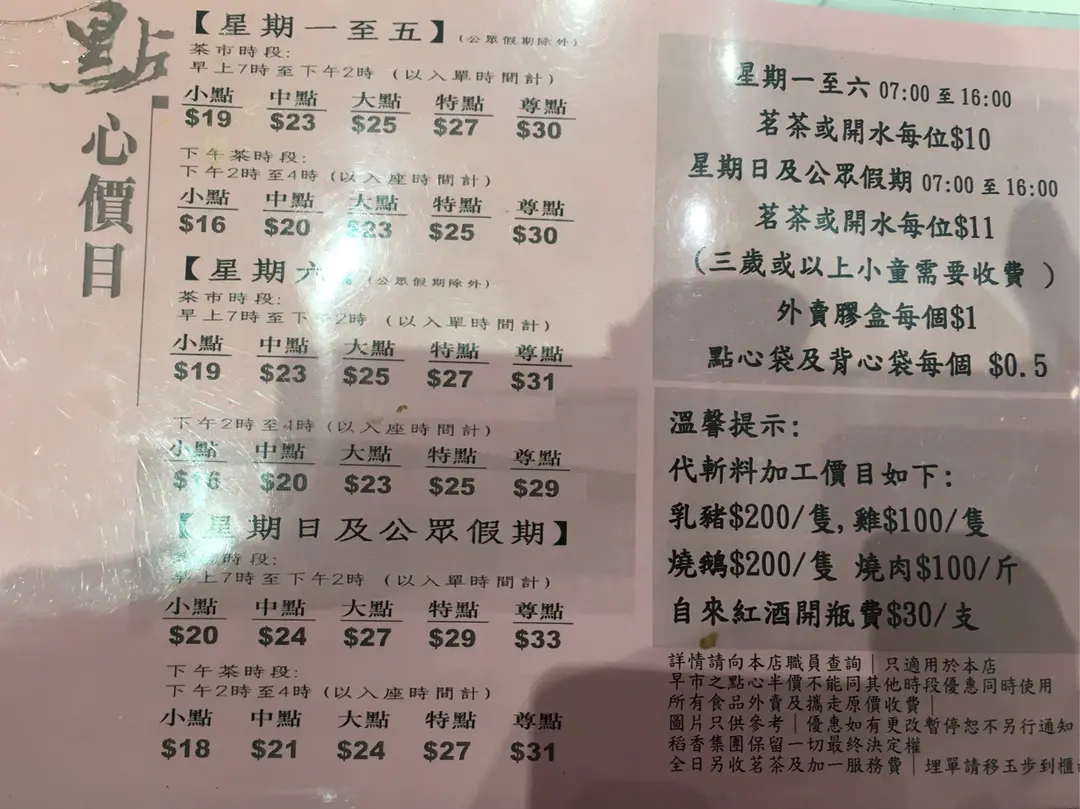 點心價目
【星期一至五】(公眾假期除外)
茶市時段:
早上7時至下午2時 (以入單時間計)
小點 中點 大點 特點 尊點
$19 $23 $25 $27 $30
下午茶時段:
下午2時至4時 (以入座時間計)
小點 中點 大點 特點 尊點
$16 $20 $23 $25 $30
【星期六 (公眾假期除外)
茶市時段:
早上7時至下午2時 (以入單時間計)
小點 中點 大點 特點 尊點
$19 $23 $25 $27 $31
下午2時至4時 (以入座時間計)
小點 中點 大點 特點 尊點
$16 $20 $23 $25 $29
【星期日及公眾假期】
茶市時段:
早上7時至下午2時 (以入單時間計)
小點 中點 大點 特點 尊點
$20 $24 $27 $29 $33
下午茶時段:
下午2時至4時 (以入座時間計)
小點 中點 大點 特點 尊點
$18 $21 $24 $27 $31
星期一至六 07:00 至 16:00
茗茶或開水每位$10
星期日及公眾假期 07:00 至 16:00
茗茶或開水每位$11
(三歲或以上小童需要收費 )
外賣膠盒每個$1
點心袋及背心袋每個 $0.5
溫馨提示:
代斬料加工價目如下:
乳豬$200/隻, 雞$100/隻
燒鵝$200/隻 燒肉$100/斤
自來紅酒開瓶費$30/支
詳情請向本店職員查詢|只適用於本店
早市之點心半價不能同其他時段優惠同時使用
所有食品外賣及攜走原價收費|
圖片只供參考|優惠如有更改暫停恕不另行通知
稻香集團保留一切最終決定權
全日另收茗茶及加一服務費|埋單請移玉步到櫃